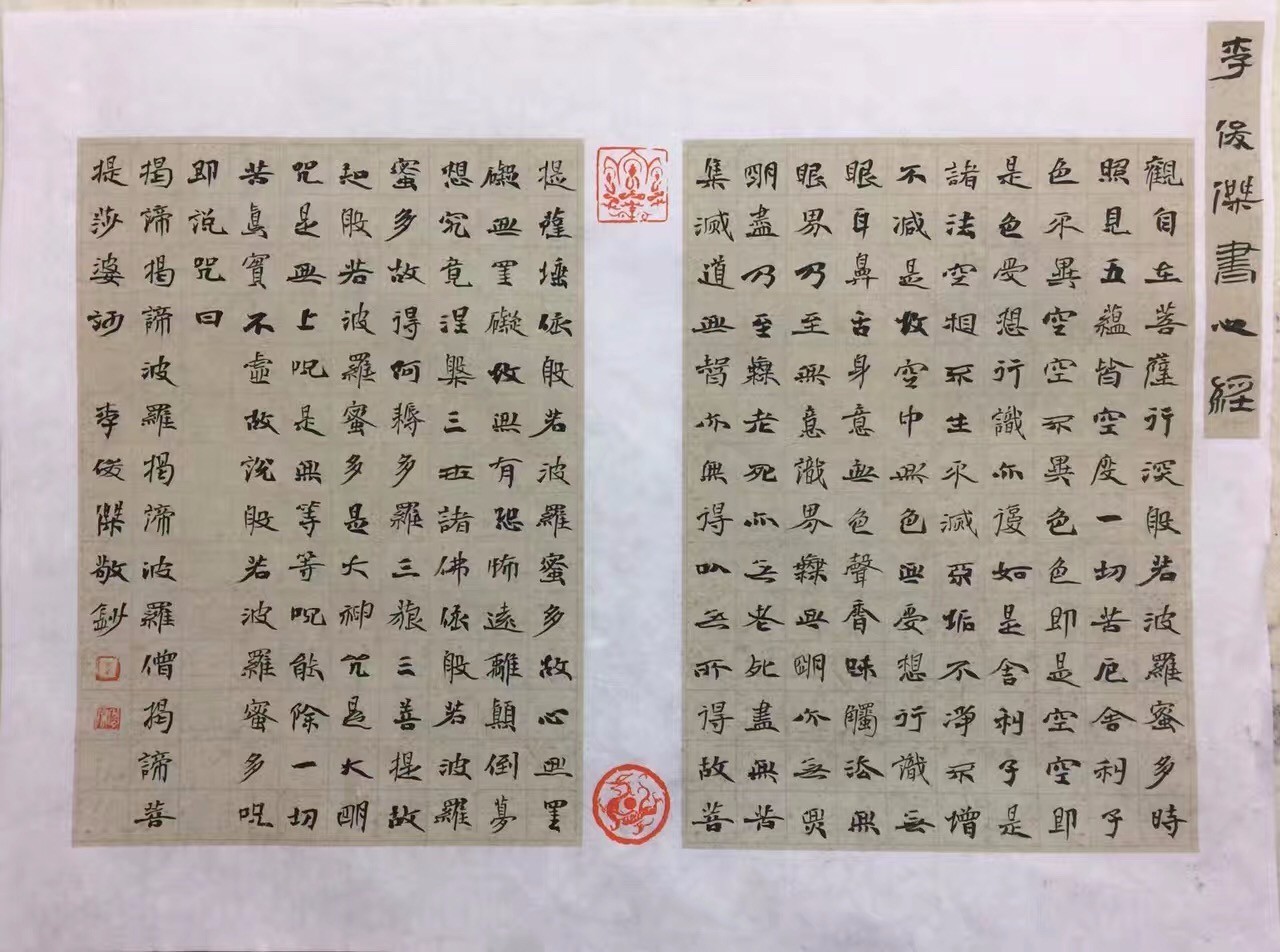 李俊傑書心經
觀自在菩薩行深般若波羅蜜多時
照見五蘊皆空度一切苦厄舍利子
色不異空空不異色色即是空空即
是色受想行識亦復如是舍利子是
諸法空相不生不滅不垢不淨不增
不減是故空中無色無受想行識無
眼耳鼻舌身意無色聲香味觸法無
眼界乃至無意識界無無明亦無無
明盡乃至無老死亦無老死盡無苦
集滅道無智亦無得以無所得故菩
提薩埵依般若波羅蜜多故心無罣
礙無罣礙故無有恐怖遠離顛倒夢
想究竟涅槃三世諸佛依般若波羅
蜜多故得阿耨多羅三藐三菩提故
知般若波羅蜜多是大神咒是大明
咒是無上咒是無等等咒能除一切
苦真實不虛故說般若波羅蜜多咒
即說咒曰
揭諦揭諦波羅揭諦波羅僧揭諦菩
提莎婆訶 李俊傑敬鈔